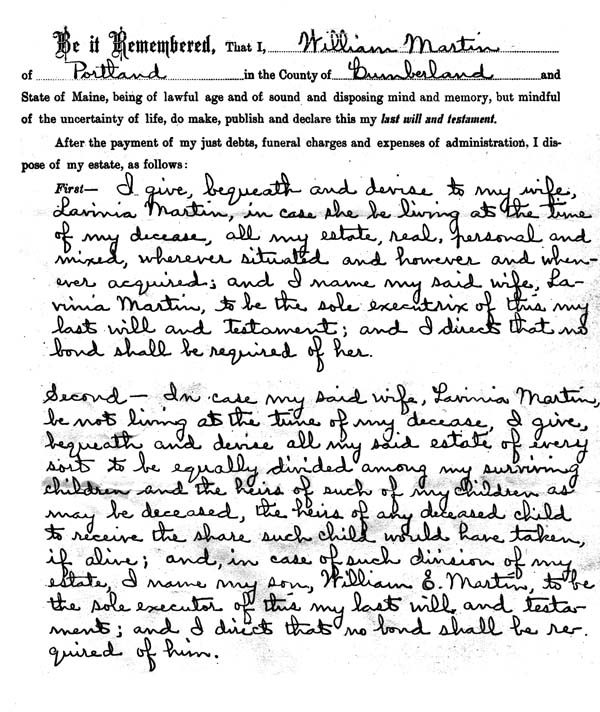 Be it Remembered, That I, William Martin
of Portland in the County of Cumberland and
State of Maine, being of lawful age and of sound and disposing mind and memory, but mindful
of the uncertainty of life, do make, publish and declare this my last will and testament.
After the payment of my just debts, funeral charges and expenses of administration, I dis-
pose of my estate, as follows:
First— I give, bequeath and devise to my wife,
Lavinia Martin, in case she be living at the time
of my decease, all my estate, real, personal and
mixed, wherever situated and however and when-
ever acquired; and I name my said wife, La-
vinia Martin, to be the sole executrix of this my
last will and testament; and I direct that no
bond shall be required of her.
Second— In case my said wife, Lavinia Martin,
be not living at the time of my decease, I give,
bequeath and devise all my said estate of every
sort to be equally divided among my surviving
children and the heirs of such of my children as
may be deceased, the heirs of any deceased child
to receive the share such child would have taken,
if alive; and, in case of such division of my
estate, I name my son, William E. Martin, to be
the sole executor of this my last will and testa-
ment; and I direct that no bond shall be re-
quired of him.